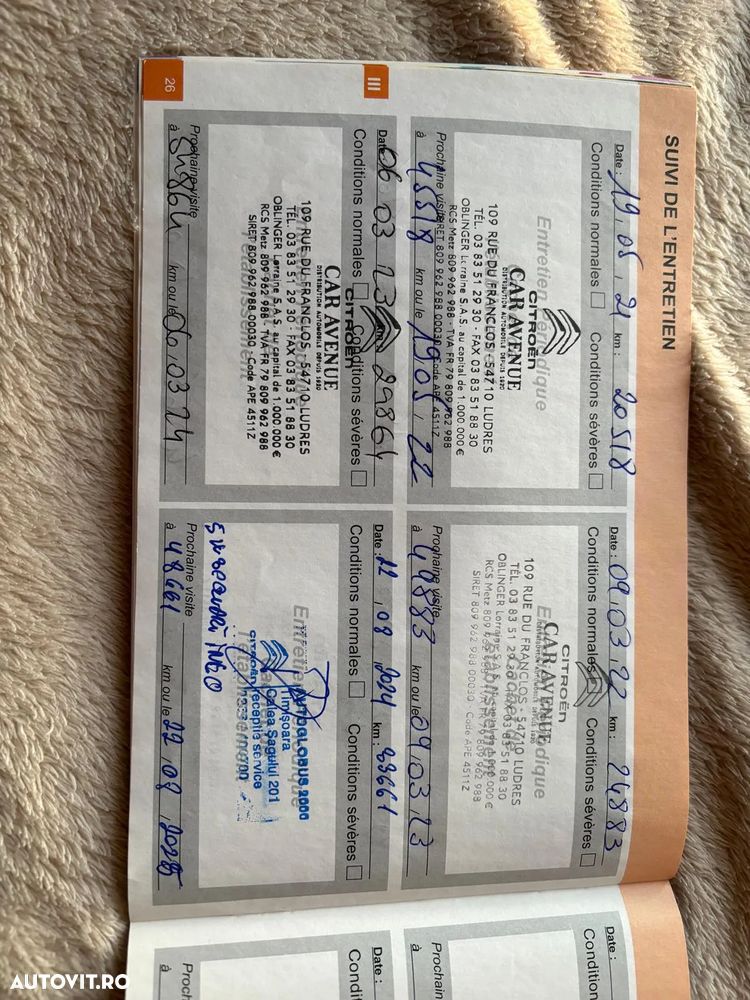 SUIVI DE L'ENTRETIEN
Date : 19, 05, 21 km : 20518
Conditions normales Conditions sévères
Entretien Périodique
CITROËN
CAR AVENUE
DISTRIBUTION AUTOMOBILE DEPUIS 1920
109 RUE DU FRANCLOS - 54710 LUDRES
TÉL. 03 83 51 29 30 - FAX 03 83 51 88 30
OBLINGER Lorraine S.A.S. au capital de 1.000.000 €
RCS Metz 809 962 988 - TVA FR 79 809 962 988
SIRET 809 962 988 00030 - Code APE 4511Z
Prochaine visite
à 45518 km ou le 19, 05, 22
Date : 09, 03, 22 km : 24883
Conditions normales Conditions sévères
Entretien Périodique
CITROËN
CAR AVENUE
109 RUE DU FRANCLOS - 54710 LUDRES
TÉL. 03 83 51 29 30 - FAX 03 83 51 88 30
OBLINGER Lorraine S.A.S. au capital de 1.000.000 €
RCS Metz 809 962 988 - TVA FR 79 809 962 988
SIRET 809 962 988 00030 - Code APE 4511Z
Prochaine visite
à 49883 km ou le 09, 03, 23
III
Date 06 03 23 km : 29864
Conditions normales Conditions sévères
CITROËN
CAR AVENUE
DISTRIBUTION AUTOMOBILE DEPUIS 1920
109 RUE DU FRANCLOS - 54710 LUDRES
TÉL. 03 83 51 29 30 - FAX 03 83 51 88 30
OBLINGER Lorraine S.A.S. au capital de 1.000.000 €
RCS Metz 809 962 988 - TVA FR 79 809 962 988
SIRET 809 962 988 00030 - Code APE 4511Z
Prochaine visite
à 54864 km ou le 06, 03, 24
Date : 22, 08, 2024 km : 33661
Conditions normales Conditions sévères
Entretien Périodique
AUTOGLOBUS 2000
Timişoara
Calea Şagului 201
CITROËN recepţia service
Prochaine visite
à 48661 km ou le 22, 08, 2025
26
Date :
Condition
Prochain
à
Date :
Condi
Proch
à
AUTOVIT.RO